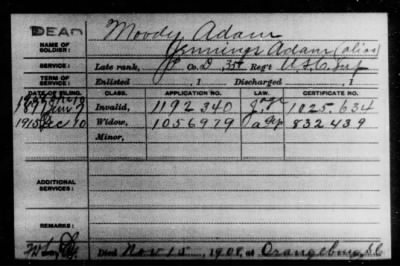 DEAD
Moody Adam
NAME OF SOLDIER:
Jennings Adam (alias)
SERVICE:
Late rank, Co. D, 35" Reg't U.S.C. Inf
TERM OF SERVICE:
Enlisted , 1 Discharged , 1
DATE OF FILING. CLASS. APPLICATION NO. LAW. CERTIFICATE NO.
Invalid, 1192340 1025,634
1915 Dec 10 Widow, 1056979 832439
Minor,
ADDITIONAL SERVICES:
REMARKS:
Died Nov 15, 1908, at Orangeburg, S.C.